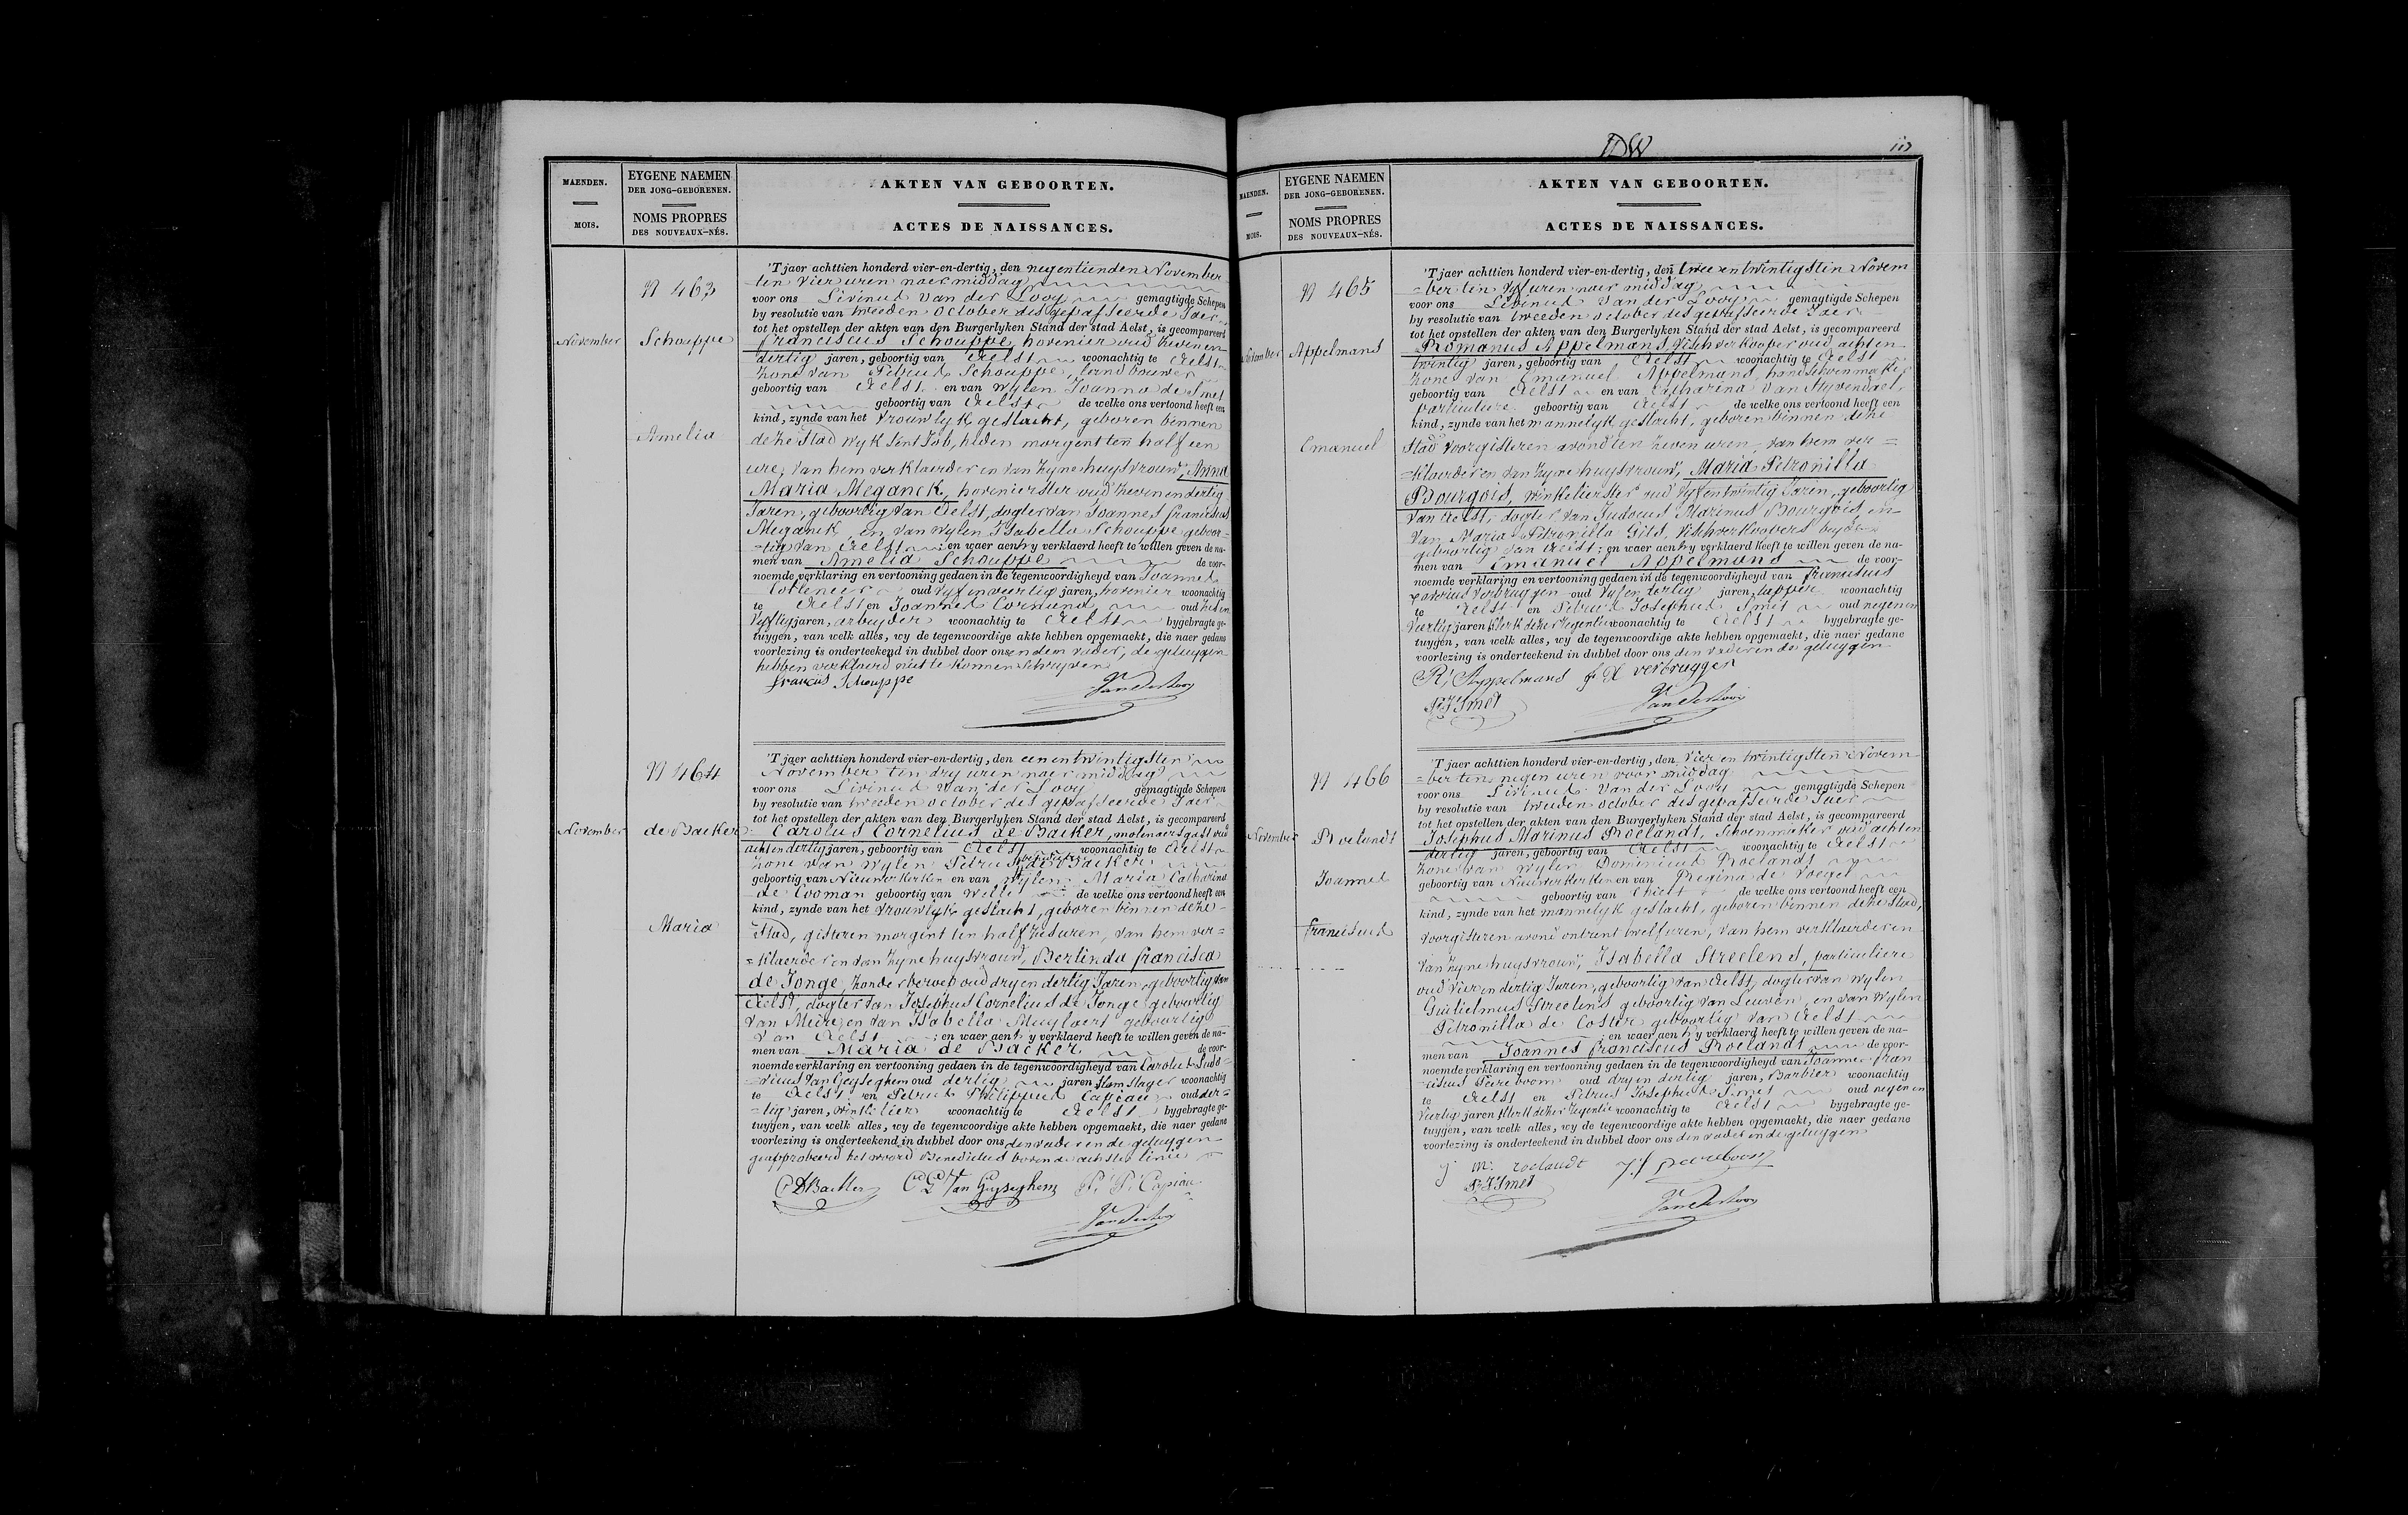 MAENDEN.
MOIS.
EYGENE NAEMEN
DER JONG-GEBORENEN.
NOMS PROPRES
DES NOUVEAUX-NÉS.
AKTEN VAN GEBOORTEN.
ACTES DE NAISSANCES.
N 463
November
Schouppe
Amelia
'T jaer achttien honderd vier-en-dertig, den negentienden November
ten vier uren naer middag
voor ons Livinus Van der Looy gemagtigde Schepen
by resolutie van tweeden October des gepasseerde Jaer
tot het opstellen der akten van den Burgerlyken Stand der stad Aelst, is gecompareerd
franciscus Schouppe, hovenier oud zeven en
dertig jaren, geboortig van Aelst woonachtig te Aelst
zone van Petrus Schouppe, landbouwer
geboortig van Aelst en van wylen Joanna de Smet
geboortig van Aelst de welke ons vertoond heeft een
kind, zynde van het vrouwlyk geslacht, geboren binnen
deze Stad wyk Sint Job, heden morgent ten half een
ure, van hem verklaerder en van zyne huysvrouw, Anna
Maria Meganck, hovenierster oud zeven en dertig
Jaren, geboortig van Aelst, dogter van Joannes franciscus
Meganck en van wylen Isabella Schouppe geboor-
=tig van Aelst en waer aen hy verklaerd heeft te willen geven de na-
men van Amelia Schouppe de voor-
noemde verklaring en vertooning gedaen in de tegenwoordigheyd van Joannes
oud vyf en veertig jaren, hovenier woonachtig
te Aelst en Joannes Cornand oud zes en
vyftig jaren, arbeyder woonachtig te Aelst bygebragte ge-
tuygen, van welk alles, wy de tegenwoordige akte hebben opgemaekt, die naer gedane
voorlezing is onderteekend in dubbel door ons en den vader, de getuygen
hebben verklaerd niet te konnen schryven
francus Schouppe
Vander Looy
N 464
November
de Backer
Maria
'T jaer achttien honderd vier-en-dertig, den een en twintigsten
November ten dry uren naer middag
voor ons Livinus Van der Looy gemagtigde Schepen
by resolutie van tweeden October des gepasseerde Jaer
tot het opstellen der akten van den Burgerlyken Stand der stad Aelst, is gecompareerd
Carolus Cornelius de Backer, molenaers gast oud
acht en dertig jaren, geboortig van Aelst woonachtig te Aelst
zone van wylen Petrus Benedictus de Backer
geboortig van Nieuwerkerken en van wylen Maria Catharina
de Cooman geboortig van Welle de welke ons vertoond heeft een
kind, zynde van het vrouwlyk geslacht, geboren binnen deze
Stad, gisteren morgent ten half zes uren, van hem ver=
=klaerder en van zyne huysvrouw, Berlinda francisca
de Jonge, zonder beroep oud dry en dertig Jaren, geboortig van
Aelst, dogter van Josephus Cornelius de Jonge geboortig
van Meire, en van Isabella Muylaert geboortig
van Aelst en waer aen hy verklaerd heeft te willen geven de na-
men van Maria de Backer de voor-
noemde verklaring en vertooning gedaen in de tegenwoordigheyd van Carolus Ludo=
=vicus Van Geyseghem oud dertig jaren, woonachtig
te Aelst en Petrus Philippus Capiau oud der=
=tig jaren, winkelier woonachtig te Aelst bygebragte ge-
tuygen, van welk alles, wy de tegenwoordige akte hebben opgemaekt, die naer gedane
voorlezing is onderteekend in dubbel door ons den vader en de getuygen
geapprobeerd het woord Benedictus boven de achtste linie
C DBackler C L Van Geyseghem P. P. Capiau
Vander Looy
DW
113
MAENDEN.
MOIS.
EYGENE NAEMEN
DER JONG-GEBORENEN.
NOMS PROPRES
DES NOUVEAUX-NÉS.
AKTEN VAN GEBOORTEN.
ACTES DE NAISSANCES.
N 465
November
Appelmans
Emanuel
'T jaer achttien honderd vier-en-dertig, den twee en twintigsten Novem
=ber ten vyf uren naer middag
voor ons Livinus Van der Looy gemagtigde Schepen
by resolutie van tweeden october des gepasseerde Jaer
tot het opstellen der akten van den Burgerlyken Stand der stad Aelst, is gecompareerd
Romanus Appelmans, vischverkooper oud acht en
twintig jaren, geboortig van Aelst woonachtig te Aelst
zone van Emanuel Appelmans, handschoenmaker
geboortig van Aelst en van Catharina Van Styvendael,
particuliere geboortig van Aelst de welke ons vertoond heeft een
kind, zynde van het mannelyk geslacht, geboren binnen deze
Stad voorgisteren avond ten zeven uren, van hem ver=
=klaerder en van zyne huysvrouw, Maria Petronilla
Bourgois, winkelierster oud vyf en twintig Jaren, geboortig
van Aelst, dogter van Judocus Marinus Bourgois, en
van Maria Petronilla Gils, vischverkoopers beyde
geboortig van Aelst; en waer aen hy verklaerd heeft te willen geven de na-
men van Emanuel Appelmans de voor-
noemde verklaring en vertooning gedaen in de tegenwoordigheyd van franciscus
xaverius Verbruggen oud vyf en dertig jaren, tapper woonachtig
te Aelst en Petrus Josephus Smet oud negen en
veertig jaren Klerk dezer Regentie woonachtig te Aelst bygebragte ge-
tuygen, van welk alles, wy de tegenwoordige akte hebben opgemaekt, die naer gedane
voorlezing is onderteekend in dubbel door ons den vader en de getuygen
R, Appelmans f X verbruggen
P. J Smet
Vander Looy
N 466
November
Roelandt
Joannes
franciscus
'T jaer achttien honderd vier-en-dertig, den vier en twintigsten Novem
=ber ten negen uren voor middag
voor ons Livinus Van der Looy gemagtigde Schepen
by resolutie van tweeden October des gepasseerde Jaer
tot het opstellen der akten van den Burgerlyken Stand der stad Aelst, is gecompareerd
Josephus Marinus Roelandt, Schoenmaker oud acht en
dertig jaren, geboortig van Aelst woonachtig te Aelst
zone van wylen Dominicus Roelandt
geboortig van Nieuwerkerken en van Regina de Voegel
geboortig van de welke ons vertoond heeft een
kind, zynde van het mannelyk geslacht, geboren binnen deze Stad,
voorgisteren avond ontrent twelf uren, van hem verklaerder en
van zyne huysvrouw, Isabella Streelens, particuliere
oud vier en dertig Jaren, geboortig van Aelst, dogter van wylen
Guilielmus Streelens geboortig van Leuven, en van wylen
Petronilla de Coster geboortig van Aelst
en waer aen hy verklaerd heeft te willen geven de na-
men van Joannes franciscus Roelandt de voor-
noemde verklaring en vertooning gedaen in de tegenwoordigheyd van Joannes fran
ciscus Peereboom oud dry en dertig jaren, Barbier woonachtig
te Aelst en Petrus Josephus Smet oud negen en
veertig jaren Klerk dezer Regentie woonachtig te Aelst bygebragte ge-
tuygen, van welk alles, wy de tegenwoordige akte hebben opgemaekt, die naer gedane
voorlezing is onderteekend in dubbel door ons den vader en de getuygen
j m. roelandt J. f peereboom
P. J Smet
Vander Looy